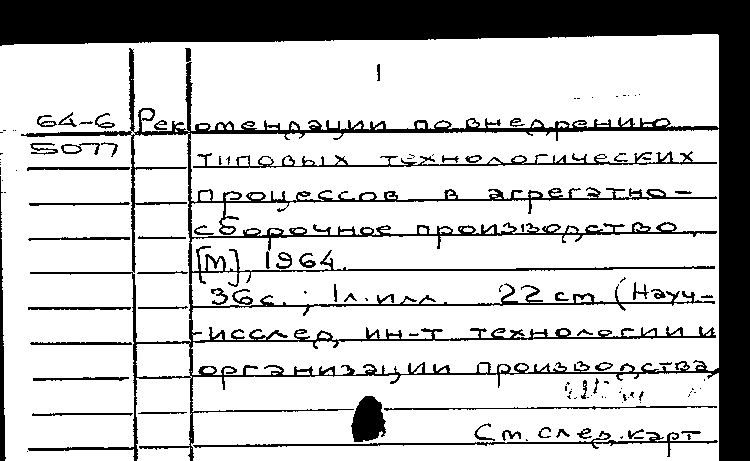 1
64-6 Рекомендации по внедрению
5077 типовых технологических
процессов в агрегатно-
сборочное производство.
[М.], 1964.
36 с.; 1 л. илл. 22 cm (Науч-
-исслед. ин-т технологии и
организации производства
См. след. карт